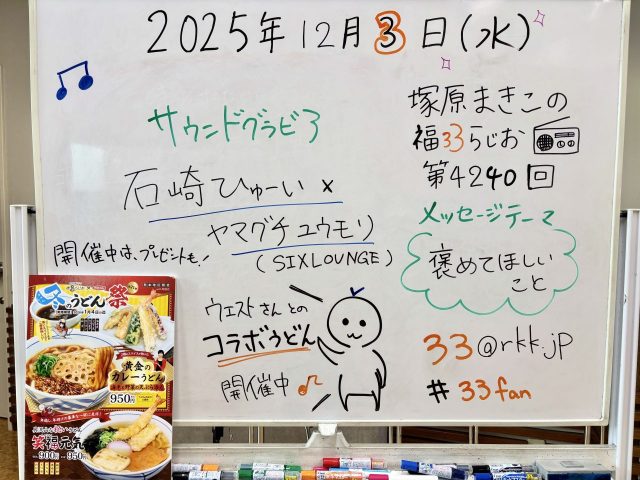 2025年12月3日(水)
サウンドグラビ3
石崎ひゅーい×
ヤマグチユウモリ
(SIXLOUNGE)
開催中は、プレゼントも!
ウエストさんとの
コラボうどん
開催中
塚原まきこの
福33らじお
第4240回
メッセージテーマ
褒めてほしい
こと
33@rkk.jp
#33fan
冬のうどん祭
黄金の
カレーうどん
950円
900円
950円